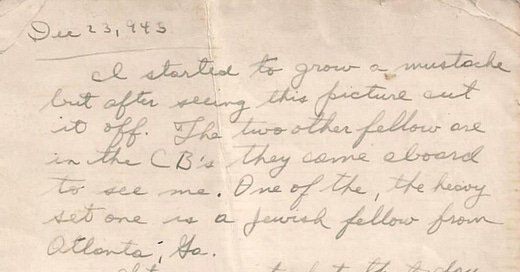 Dec 23, 1945
I started to grow a mustache
but after seeing this picture cut
it off. The two other fellow are
in the CB's they came aboard
to see me. One of the, the heavy
set one is a Jewish fellow from
Atlanta, Ga.